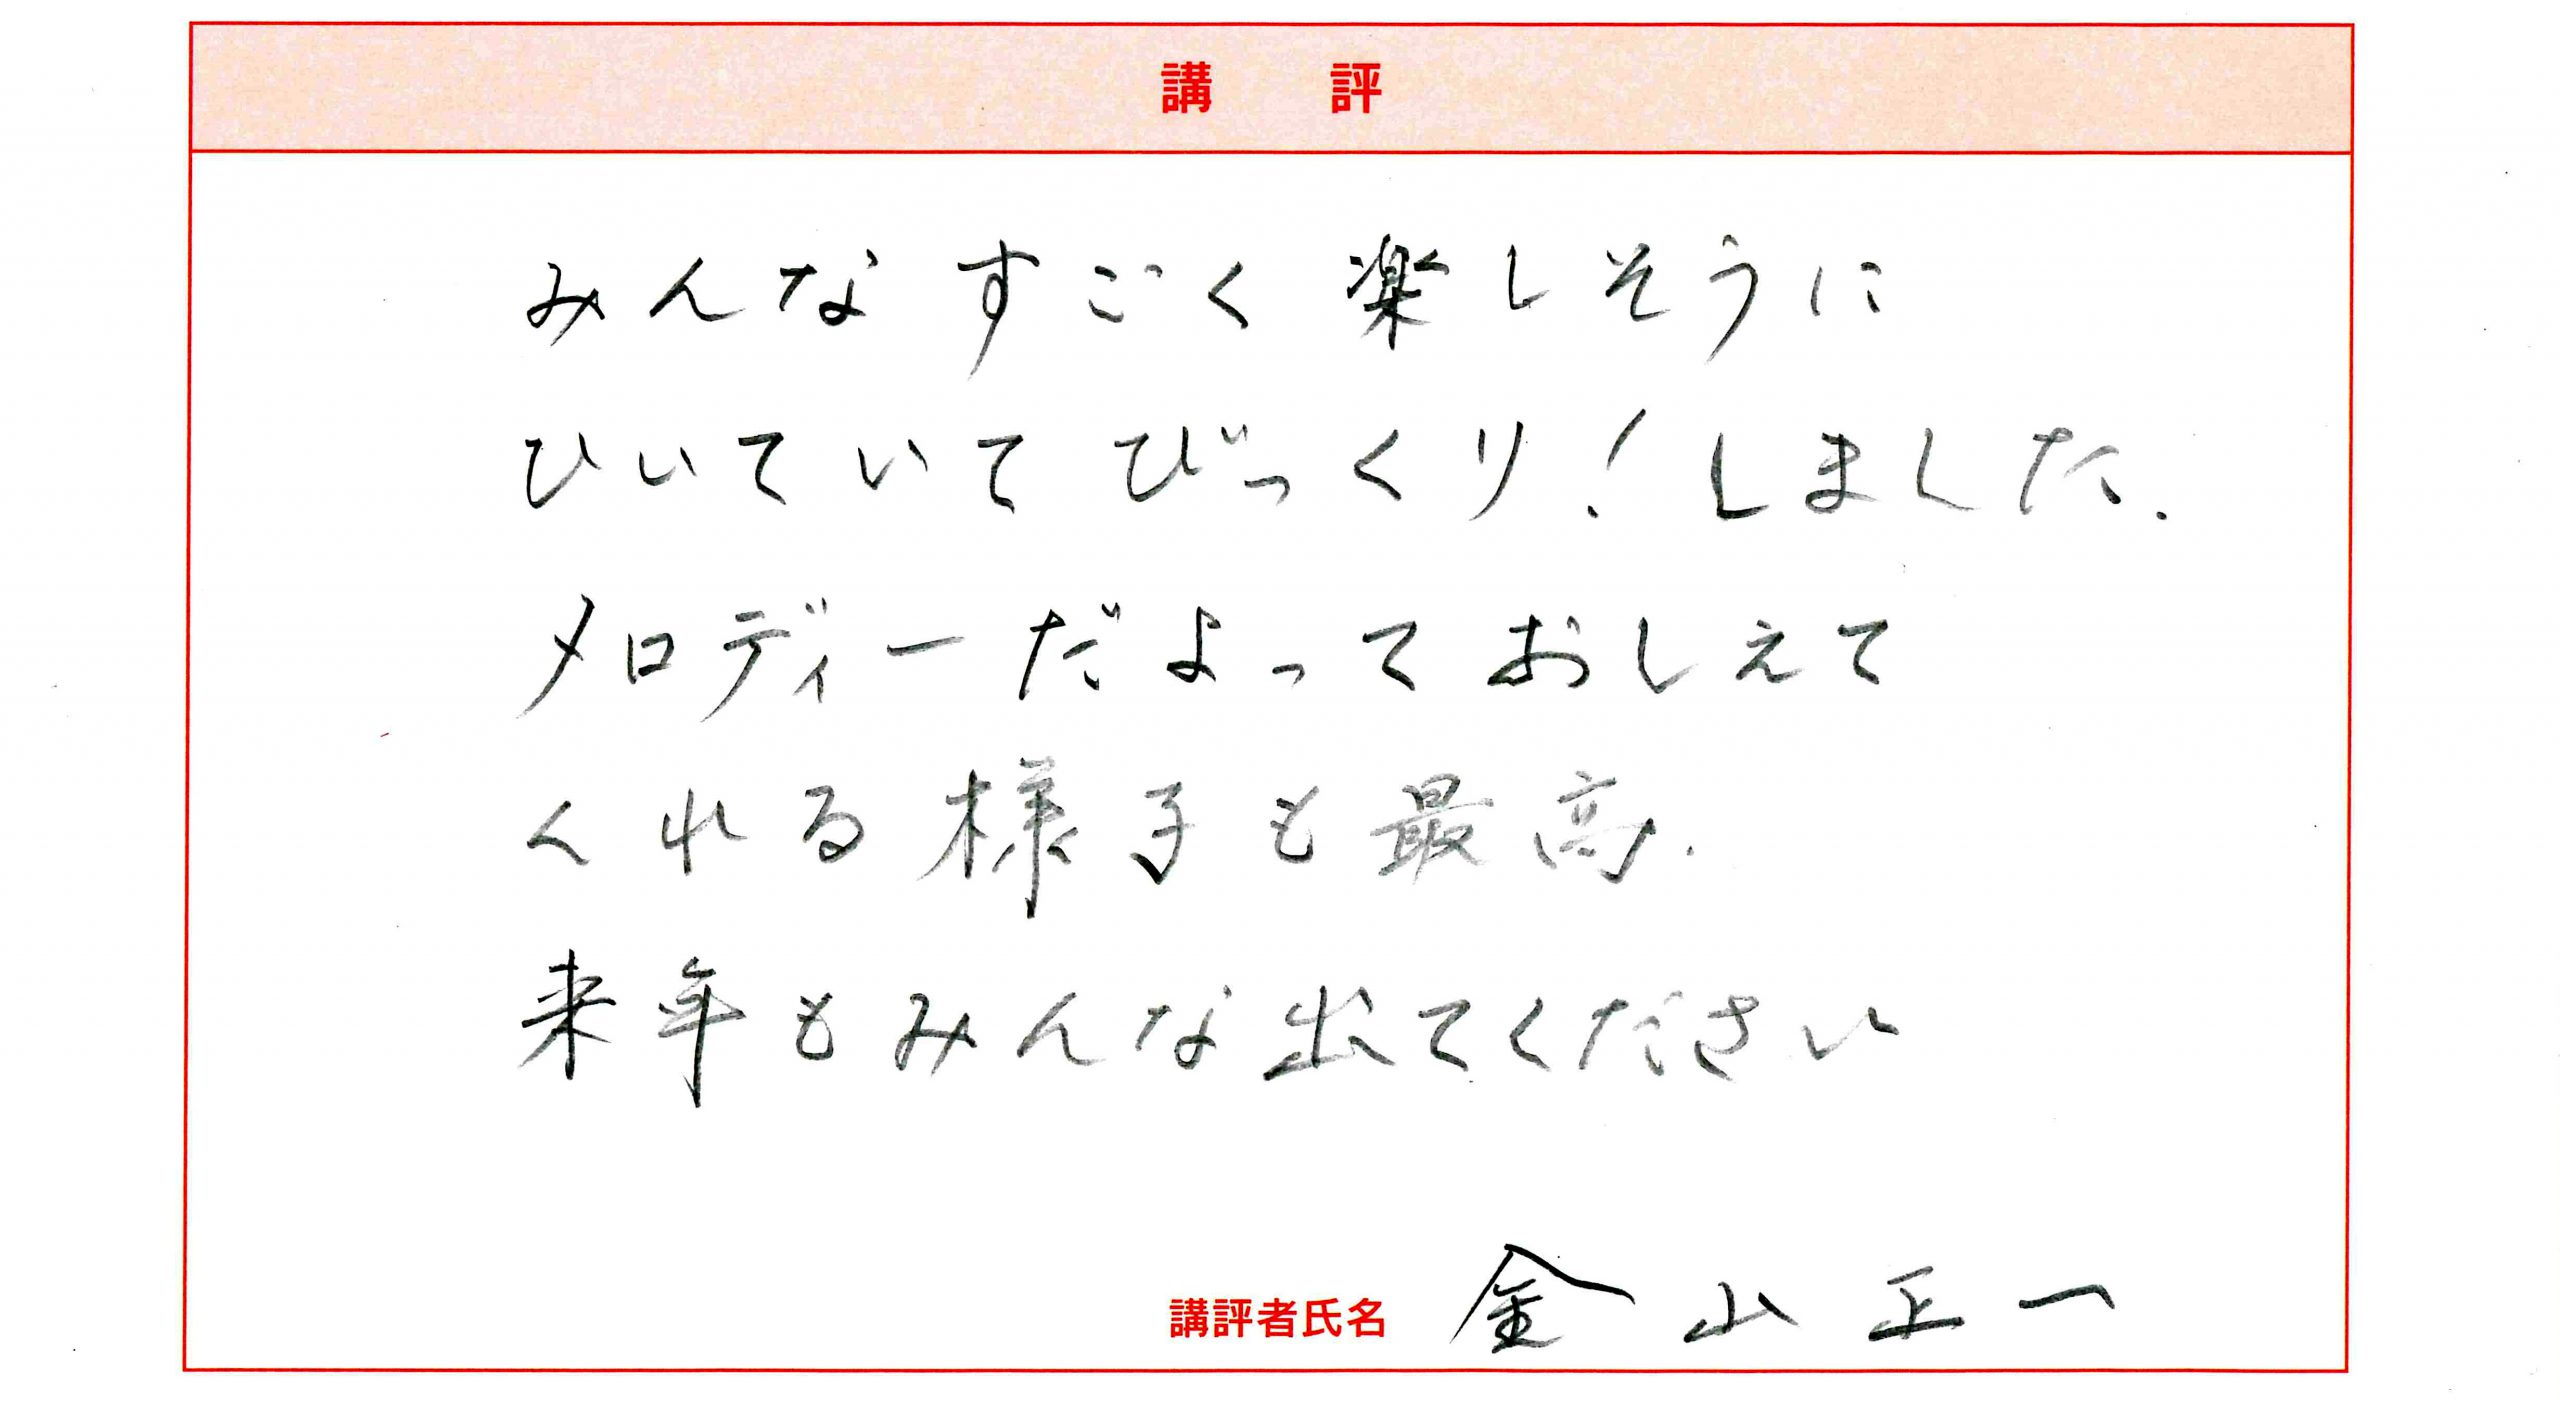 講　評
みんなすごく楽しそうに
ひいていてびっくり!しました.
メロディーだよっておしえて
くれる様子も最高.
来年もみんな出てください
講評者氏名 金山正一